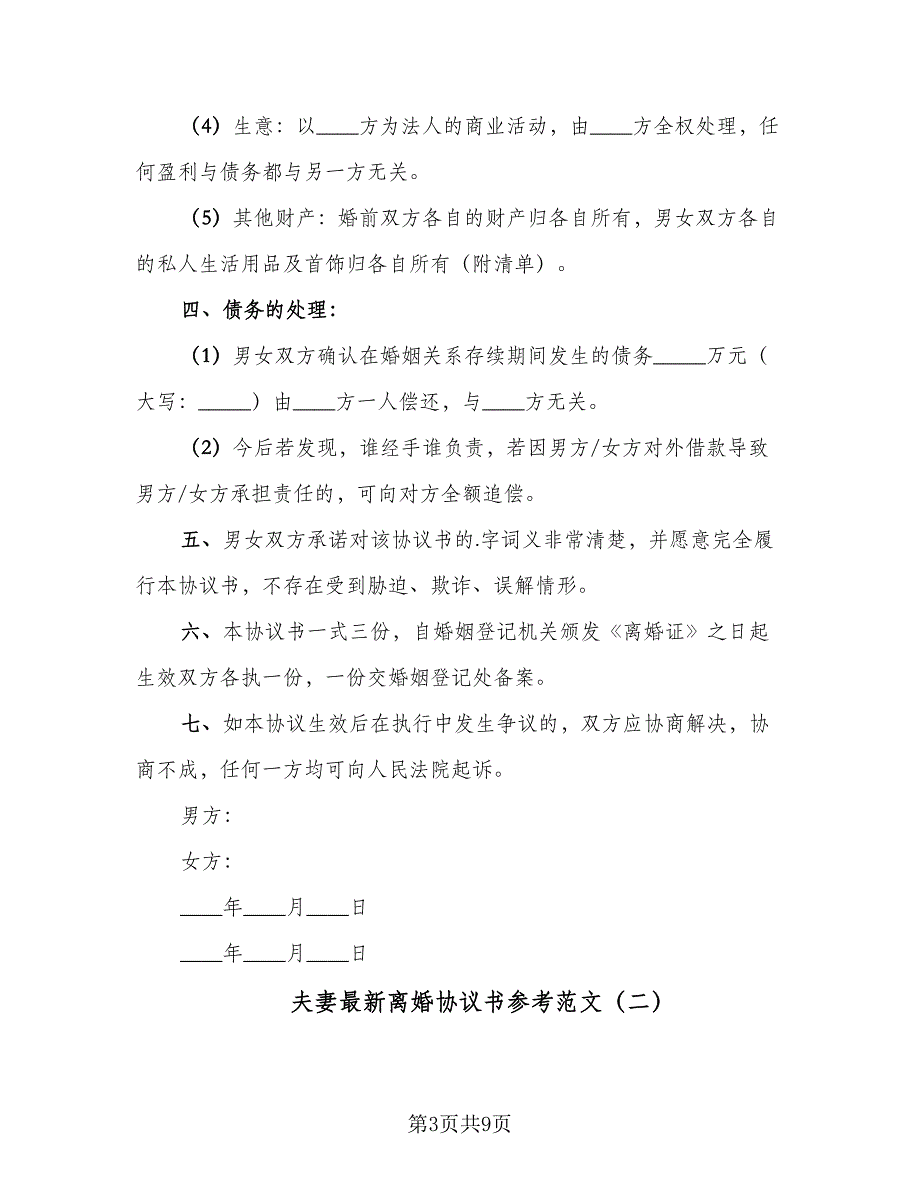 （4）生意：以____方为法人的商业活动，由____方全权处理，任
何盈利与债务都与另一方无关。
（5）其他财产：婚前双方各自的财产归各自所有，男女双方各自
的私人生活用品及首饰归各自所有（附清单）。
四、债务的处理：
（1）男女双方确认在婚姻关系存续期间发生的债务_____万元（
大写：_____）由____方一人偿还，与____方无关。
（2）今后若发现，谁经手谁负责，若因男方/女方对外借款导致
男方/女方承担责任的，可向对方全额追偿。
五、男女双方承诺对该协议书的.字词义非常清楚，并愿意完全履
行本协议书，不存在受到胁迫、欺诈、误解情形。
六、本协议书一式三份，自婚姻登记机关颁发《离婚证》之日起
生效双方各执一份，一份交婚姻登记处备案。
七、如本协议生效后在执行中发生争议的，双方应协商解决，协
商不成，任何一方均可向人民法院起诉。
男方：
女方：
____年____月____日
____年____月____日
夫妻最新离婚协议书参考范文（二）
第3页共9页